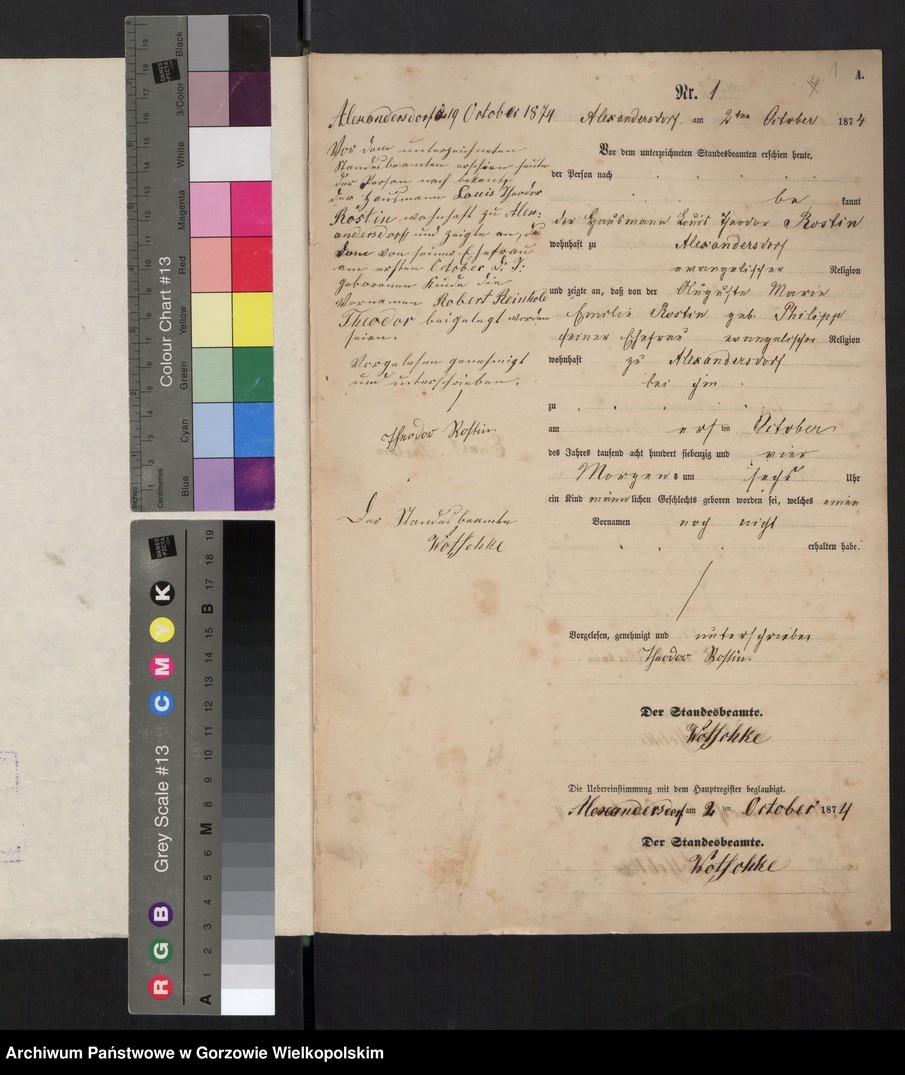 A.
Nr. 1
Alexandersdorf am 2ten October 1874
Vor dem unterzeichneten Standesbeamten erschien heute,
der Person nach
be kannt
der Hausmann Louis Theodor Rostin
wohnhaft zu Alexandersdorf
evangelischer Religion
und zeigte an, daß von der Auguste Marie
Emilie Rostin geb. Philipp
seiner Ehefrau evangelischer Religion
wohnhaft zu Alexandersdorf
bei ihm
zu
am ersten October
des Jahres tausend acht hundert siebenzig und vier
Morgens um sechs Uhr
ein Kind männlichen Geschlechts geboren worden sei, welches einen
Vornamen noch nicht
erhalten habe.
Vorgelesen, genehmigt und unterschrieben
Theodor Rostin.
Der Standesbeamte.
Kötschke
Die Uebereinstimmung mit dem Hauptregister beglaubigt.
Alexandersdorf am 2ten October 1874
Der Standesbeamte.
Kötschke
Alexandersdorf d 19 October 1874
Vor dem unterzeichneten
Standesbeamten erschien heute
der Person nach bekannt
der Hausmann Louis Theodor
Rostin wohnhaft zu Alex-
andersdorf und zeigte an, daß
dem von seiner Ehefrau
am ersten October d. J.
geborenen Kinde die
Vornamen Robert Reinhold
Theodor beigelegt worden
seien.
Vorgelesen genehmigt
und unterschrieben.
Theodor Rostin.
Der Standesbeamte
Kötschke
Colour Chart #13
Blue Cyan Green Yellow Red Magenta White 3/Color Black
Inches Centimetres
DANES PICTA
Grey Scale #13
R G B C M Y K
A 1 2 3 4 5 6 M 8 9 10 11 12 13 14 15 B 17 18 19
Archiwum Państwowe w Gorzowie Wielkopolskim